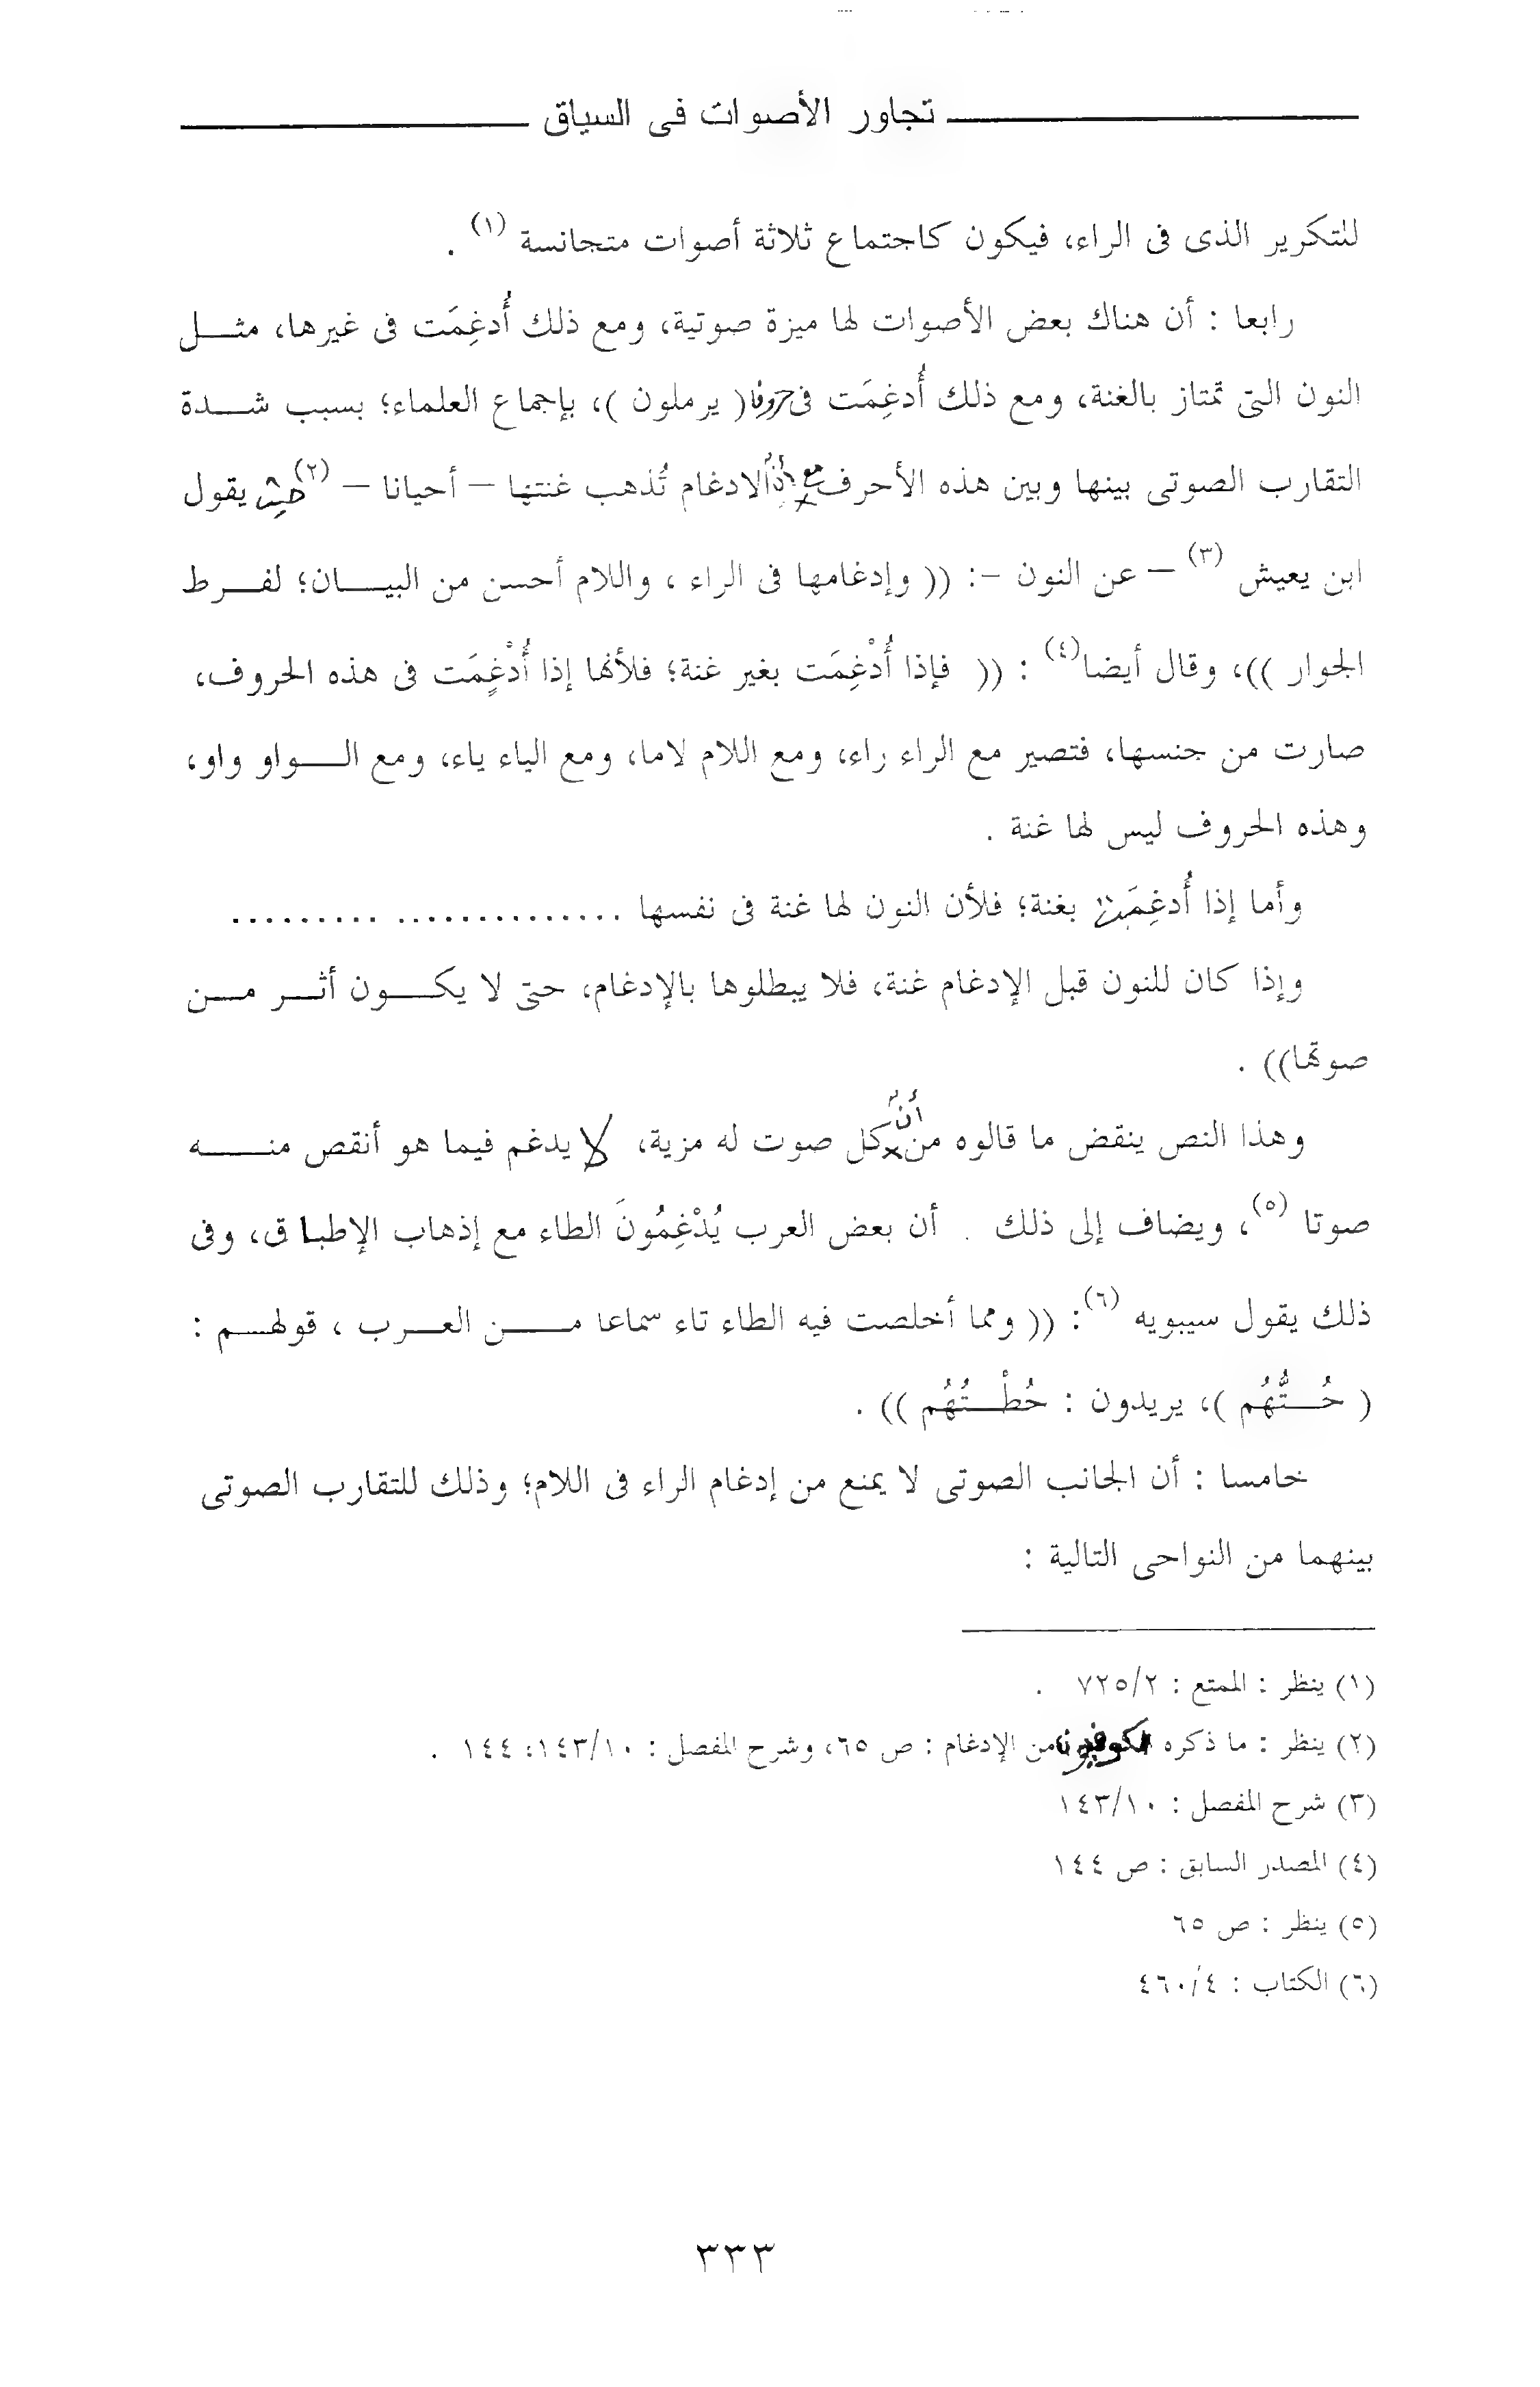 تجاور الأصوات فى السياق
للتكرير الذى فى الراء، فيكون كاجتماع ثلاثة أصوات متجانسة (١) .
رابعا : أن هناك بعض الأصوات لها ميزة صوتية، ومع ذلك أُدغِمَت فى غيرها، مثـــل
النون التى تمتاز بالغنة، ومع ذلك أُدغِمَت فى حروف ( يرملون )، بإجماع العلماء؛ بسبب شـــدة
التقارب الصوتى بينها وبين هذه الأحرف مع أنَّ الادغام تُذهب غنتها – أحيانا – (٢) حيث يقول
ابن يعيش (٣) – عن النون -: (( وإدغامها فى الراء ، واللام أحسن من البيـــان؛ لفـــرط
الجوار ))، وقال أيضا(٤) : (( فإذا أُدْغِمَت بغير غنة؛ فلأنها إذا أُدْغِمَت فى هذه الحروف،
صارت من جنسها، فتصير مع الراء راء، ومع اللام لاما، ومع الياء ياء، ومع الـــواو واو،
وهذه الحروف ليس لها غنة .
وأما إذا أُدغِمَت بغنة؛ فلأن النون لها غنة فى نفسها .......................
وإذا كان للنون قبل الإدغام غنة، فلا يبطلوها بالإدغام، حتى لا يكـــون أثـــر مـــن
صوتها)) .
وهذا النص ينقض ما قالوه من أنَّ كل صوت له مزية، لا يدغم فيما هو أنقص منـــه
صوتا (٥)، ويضاف إلى ذلك . أن بعض العرب يُدْغِمُونَ الطاء مع إذهاب الإطباق، وفى
ذلك يقول سيبويه (٦): (( ومما أخلصت فيه الطاء تاء سماعا مـــن العـــرب ، قولهـــم :
( حُـــتُّهُم )، يريدون : حُطْـــتُهُم )) .
خامسا : أن الجانب الصوتى لا يمنع من إدغام الراء فى اللام؛ وذلك للتقارب الصوتى
بينهما من النواحى التالية :
(١) ينظر : الممتع : ٧٢٥/٢ .
(٢) ينظر : ما ذكره الكوفيون من الإدغام : ص ٦٥، وشرح المفصل : ١٤٣/١٠، ١٤٤ .
(٣) شرح المفصل : ١٤٣/١٠
(٤) المصدر السابق : ص ١٤٤
(٥) ينظر : ص ٦٥
(٦) الكتاب : ٤٦٠/٤
٣٣٣